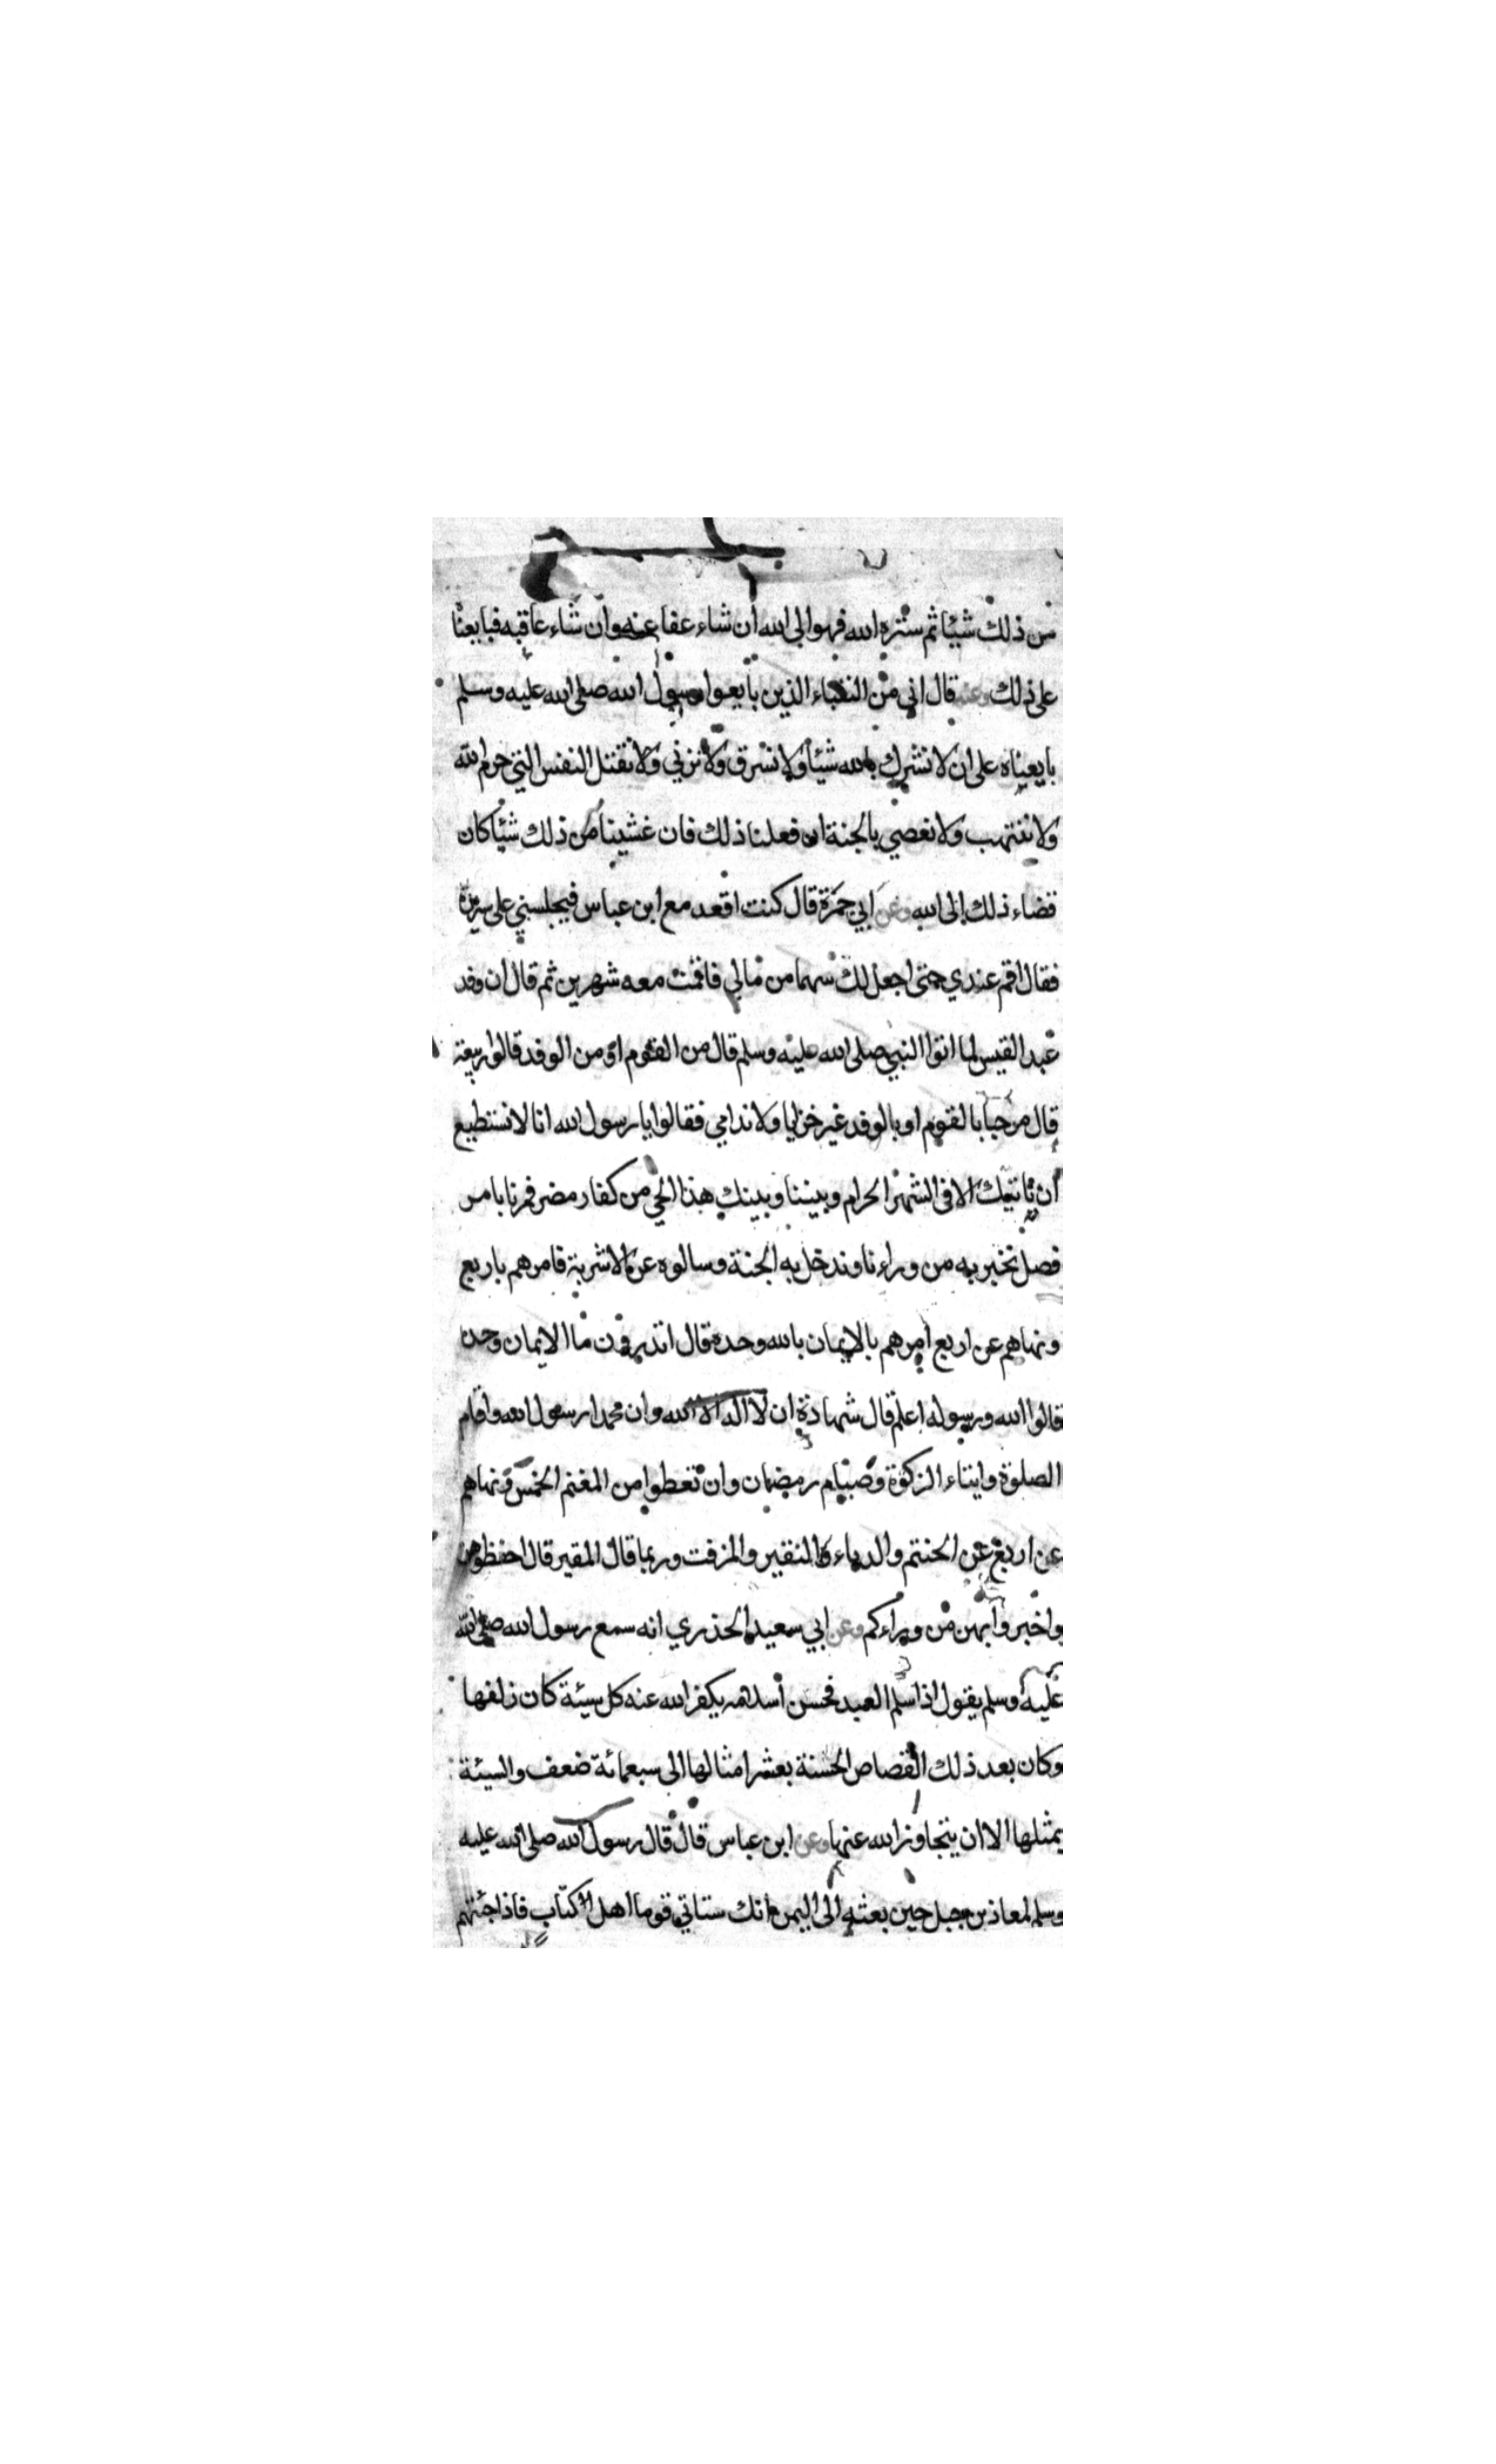 من ذلك شيئا ثم ستره الله فهو الى الله أن شاء عفا عنه وان شاء عاقبه فبايعنا
على ذلك وعنه قال اني من النقباء الذين بايعوا رسول الله صلى الله عليه وسلم
بايعناه على ان لا نشرك بالله شيئا ولا نسرق ولا نزني ولا نقتل النفس التي حرم الله
ولا ننتهب ولا نعصي بالجنة ان فعلنا ذلك فان غشينا من ذلك شيئا كان
قضاء ذلك إلى الله وعن ابي جمرة قال كنت اقعد مع ابن عباس فيجلسني على سريره
فقال اقم عندي حتى اجعل لك سهما من مالي فاقمت معه شهرين ثم قال ان وفد
عبد القيس لما اتوا النبي صلى الله عليه وسلم قال من القوم او من الوفد قالوا ربيعة
قال مرحبا بالقوم او بالوفد غير خزايا ولا ندامي فقالوا يا رسول الله انا لا نستطيع
أن ناتيك الا في الشهر الحرام وبيننا وبينك هذا الحي من كفار مضر فمرنا بامر
فصل نخبر به من وراءنا وندخل به الجنة وسالوه عن الاشربة فامرهم باربع
ونهاهم عن اربع امرهم بالايمان بالله وحده قال اتدرون ما الايمان وحده
قالوا الله ورسوله اعلم قال شهادة ان لا اله الا الله وان محمدا رسول الله واقام
الصلوة وايتاء الزكوة وصيام رمضان وان تعطوا من المغنم الخمس ونهاهم
عن اربع عن الحنتم والدباء والنقير والمزفت وربما قال المقير قال احفظوهن
واخبروا بهن من وراءكم وعن ابي سعيد الخذري انه سمع رسول الله صلى الله
عليه وسلم يقول اذا اسلم العبد فحسن أسلامه يكفر الله عنه كل سيئة كان زلفها
وكان بعد ذلك القصاص الحسنة بعشر امثالها الى سبعمائة ضعف والسيئة
بمثلها الا ان يتجاوز الله عنها وعن ابن عباس قال قال رسول الله صلى الله عليه
وسلم لمعاذ بن جبل حين بعثه الى اليمن انك ستاتي قوما اهل الكتاب فاذا جئتهم